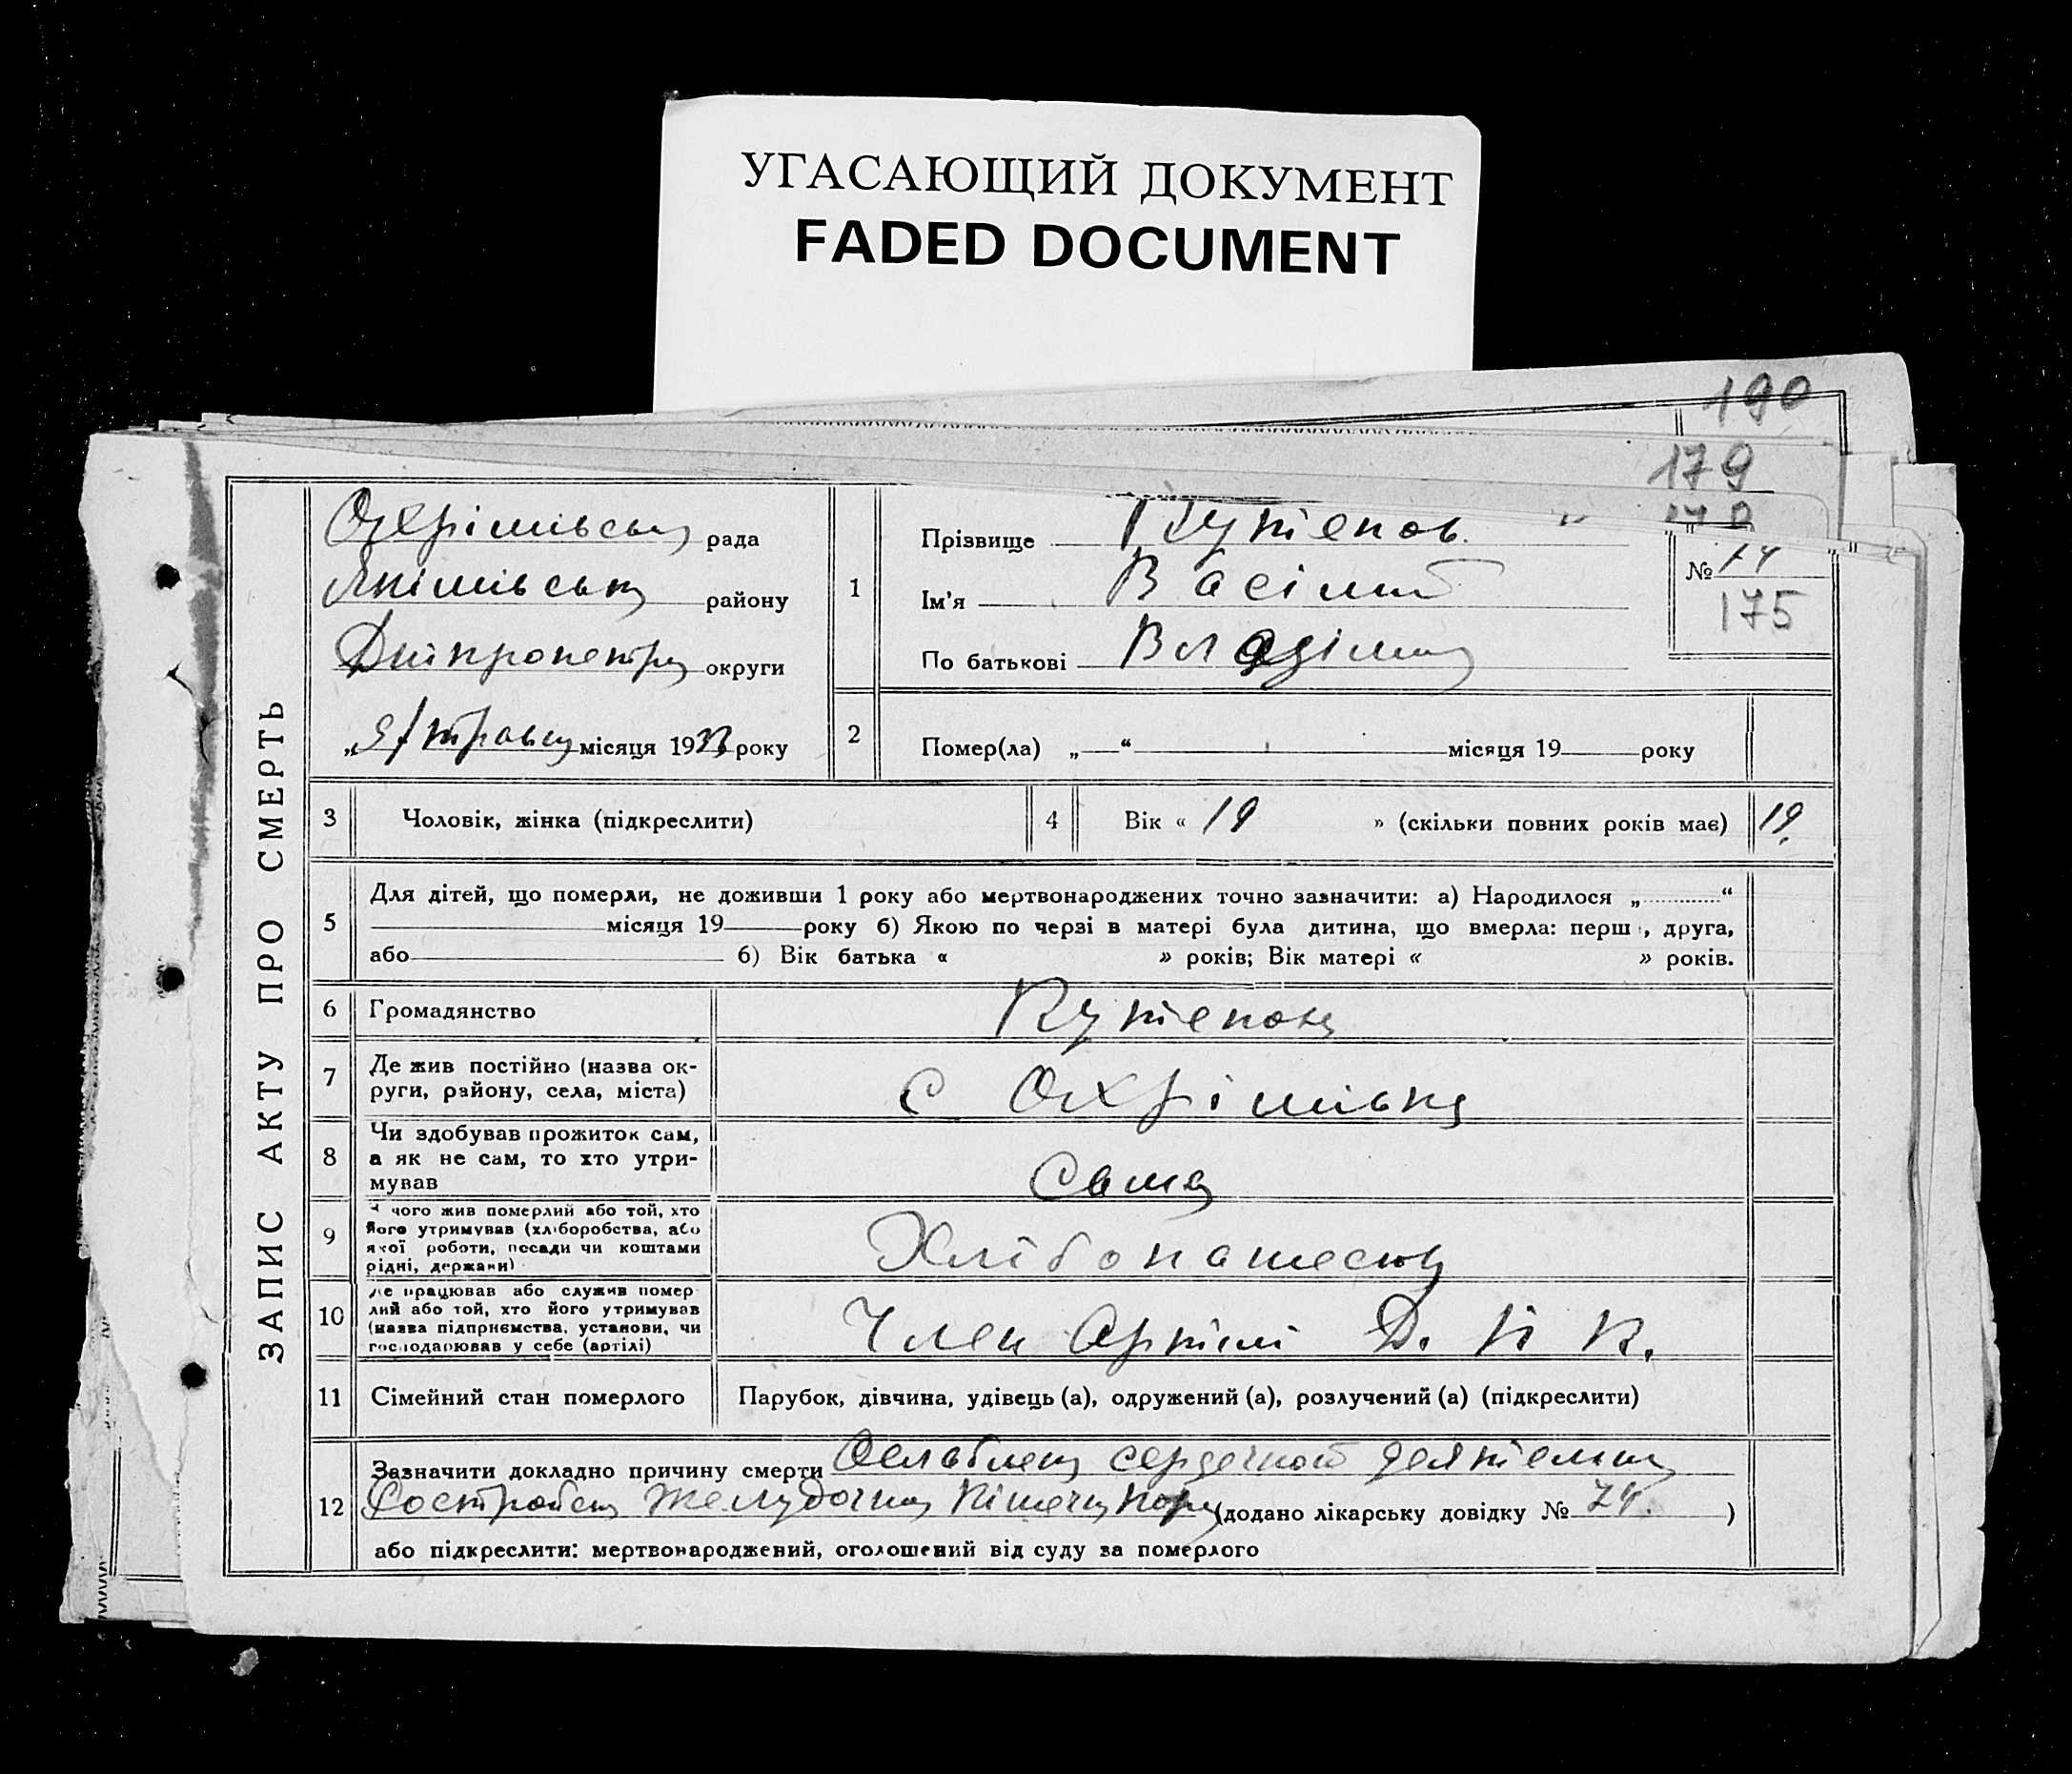 УГАСАЮЩИЙ ДОКУМЕНТ
FADED DOCUMENT
190
179
ЗАПИС АКТУ ПРО СМЕРТЬ
Охрімівськ рада
Якімівськ району
Дніпропетр округи
травня місяця 1933 року
1
Прізвище Кутепов
Ім'я Васілий
По батькові Владіми
№ 74
175
2
Помер(ла) „ “ місяця 19 року
3 Чоловік, жінка (підкреслити)
4 Вік « 19 » (скільки повних років має) 19
5 Для дітей, що померли, не доживши 1 року або мертвонароджених точно зазначити: а) Народилося „ “
місяця 19 року б) Якою по черзі в матері була дитина, що вмерла: перш , друга,
або б) Вік батька « » років; Вік матері « » років.
6 Громадянство
7 Де жив постійно (назва ок-
руги, району, села, міста)
с Охрімівка
8 Чи здобував прожиток сам,
а як не сам, то хто утри-
мував
Сама
9 чого жив померлий або той, хто
його утримував (хліборобства, або
якої роботи, посади чи коштами
рідні, держави)
10 Де працював або служив помер-
лий або той, хто його утримував
(назва підприємства, установи, чи
господарював у себе (артілі)
Член Артілі Д. К.
11 Сімейний стан померлого
Парубок, дівчина, удівець (а), одружений (а), розлучений (а) (підкреслити)
12 Зазначити докладно причину смерти сердечной деятельн
Желудочна Кішечн (додано лікарську довідку № 74. )
або підкреслити: мертвонароджений, оголошений від суду за померлого